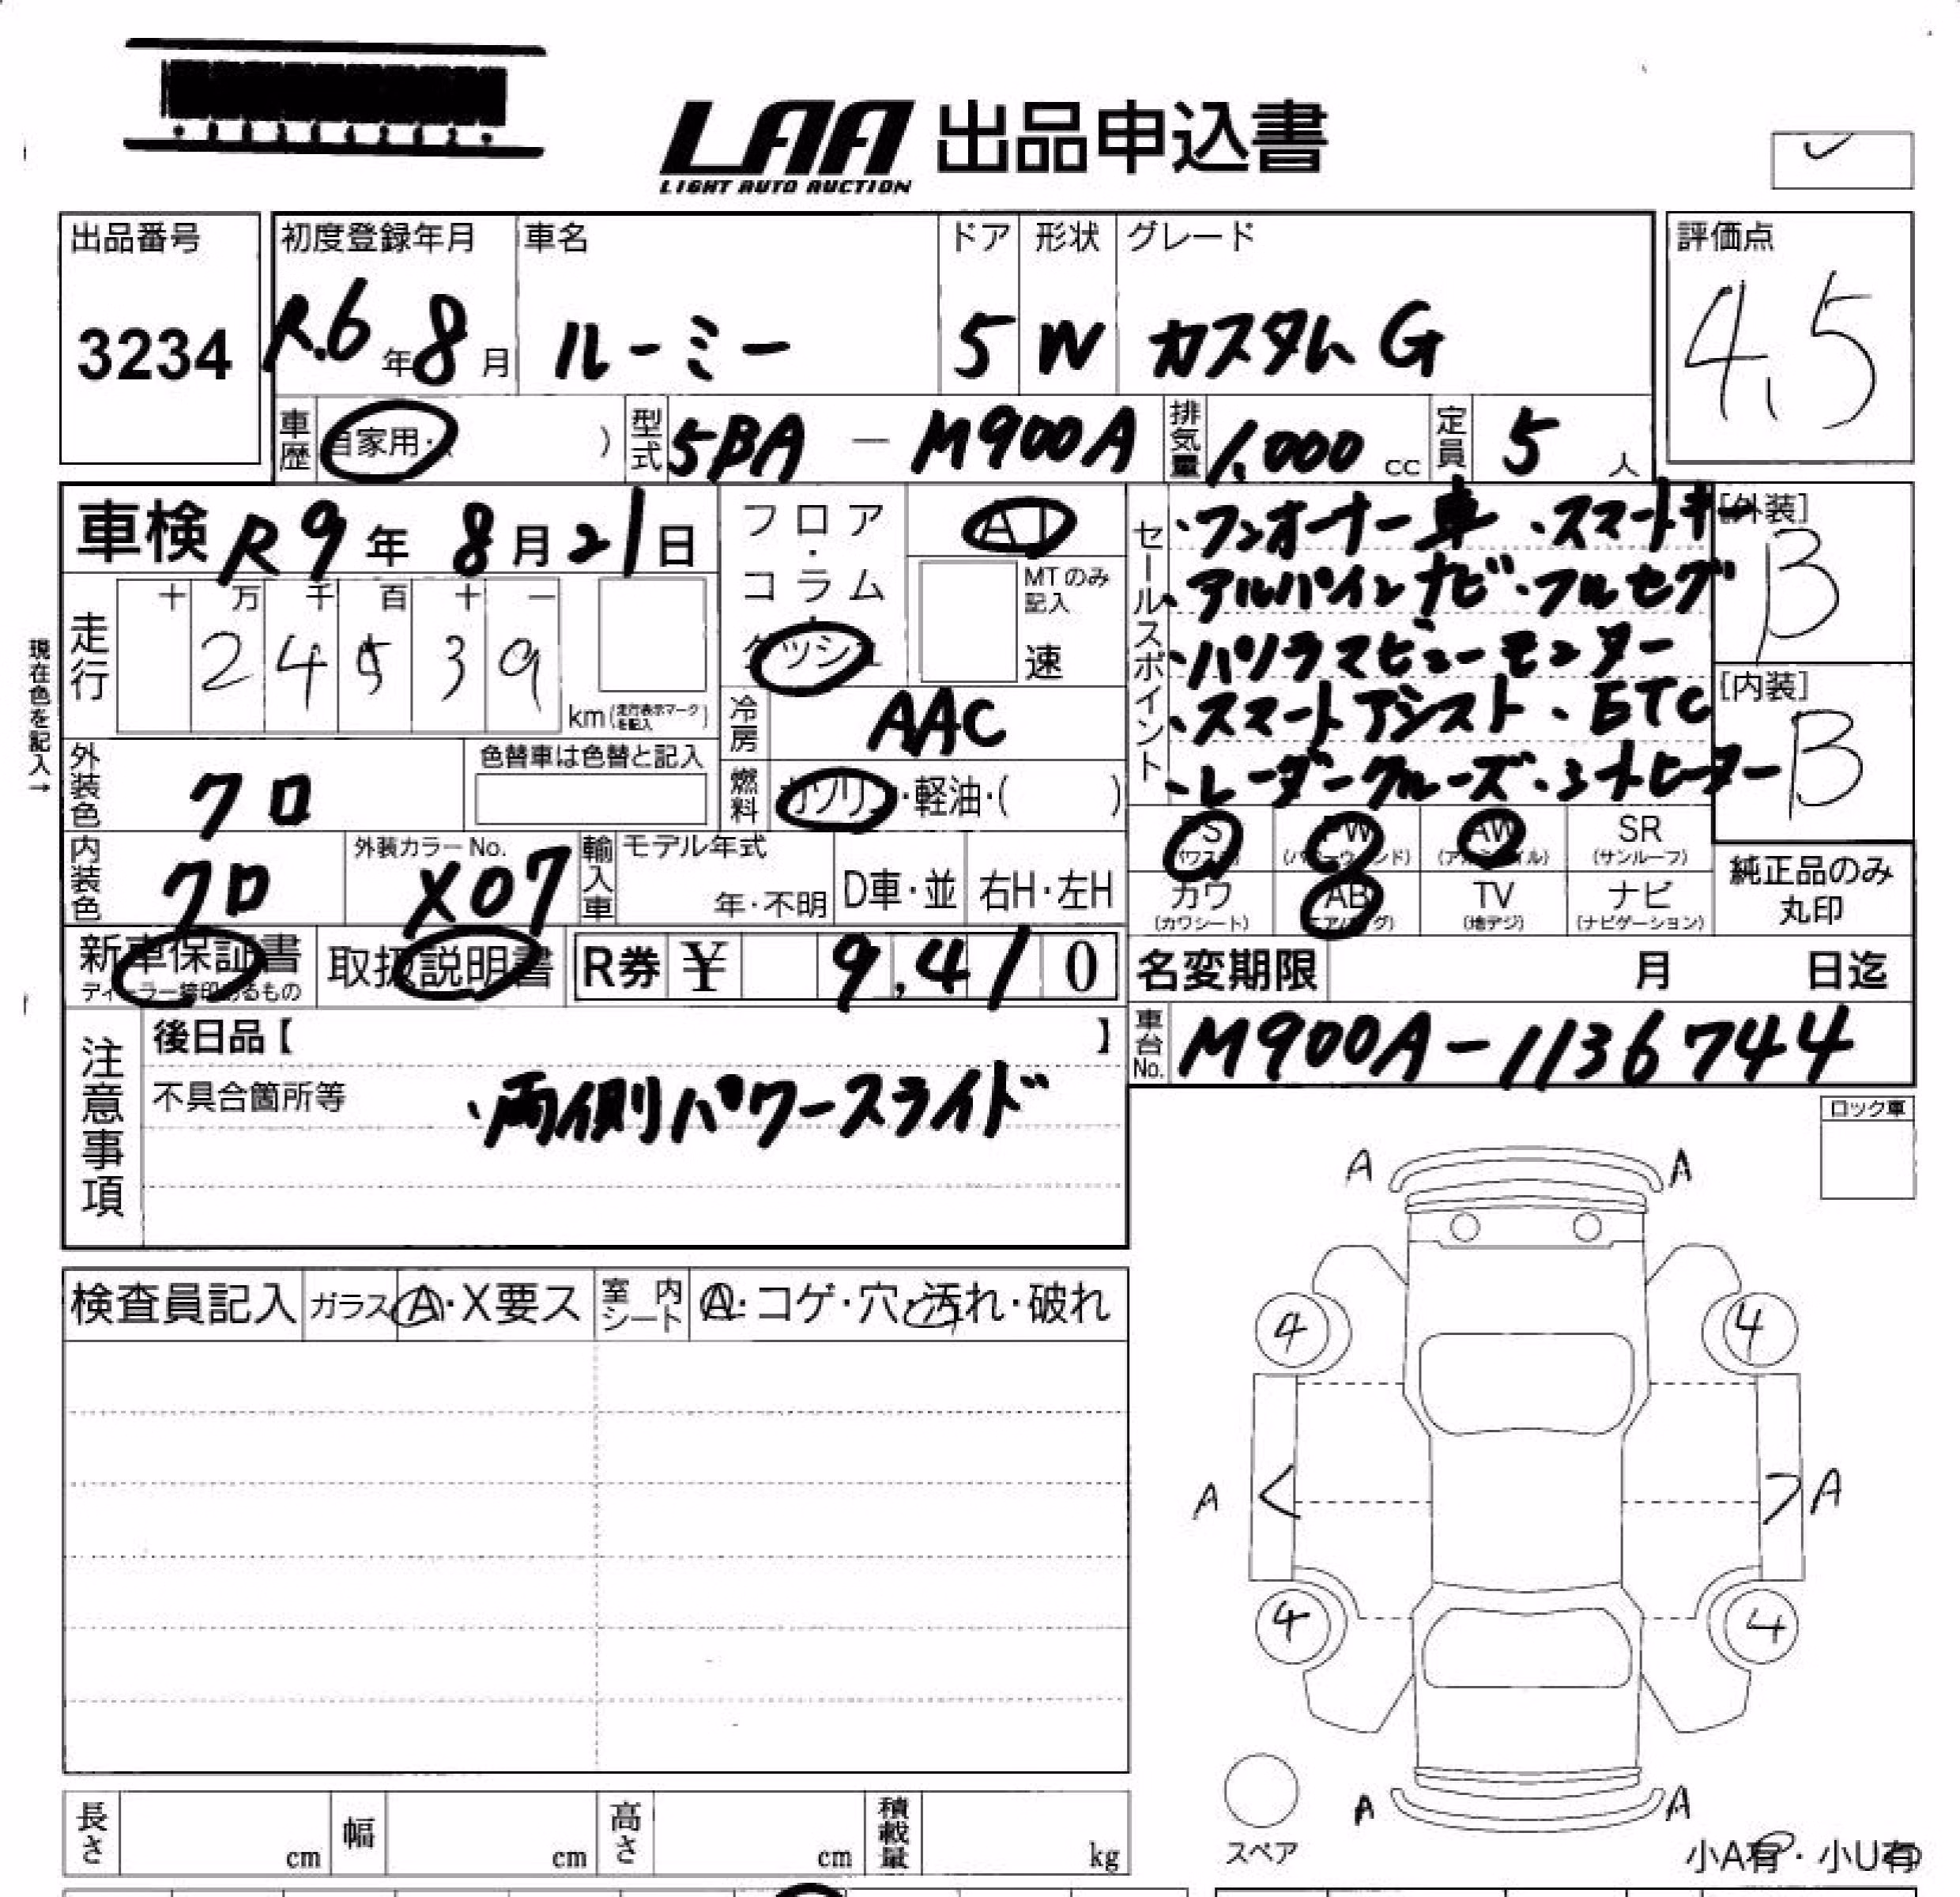 LAA 出品申込書
LIGHT AUTO AUCTION
出品番号
3234
初度登録年月
R.6年8月
車名
ルーミー
ドア
5
形状
W
グレード
カスタム G
評価点
4.5
車歴
自家用・( )
型式
5BA - M900A
排気量
1.000 cc
定員
5人
車検 R9年8月21日
フロア・コラム・
AT
MTのみ記入
速
走行
十万千百十一
24539
km(走行表示マークを記入)
現在色を記入→
冷房
AAC
燃料
ガソリン・軽油・( )
外装色
クロ
色替車は色替と記入
内装色
クロ
外装カラーNo.
X07
輸入車
モデル年式
年・不明
D車・並
右H・左H
セールスポイント
・ワンオーナー車・スマートキー
・アルパインナビ・フルセグ
・パノラマビューモニター
・スマートアシスト・ETC
・レーダークルーズ・シートヒーター
[外装]
B
[内装]
B
PS
(パワステ)
PW
(パワーウィンド)
AW
(アルミホイル)
SR
(サンルーフ)
カワ
(カワシート)
AB
(エアバッグ)
TV
(地デジ)
ナビ
(ナビゲーション)
純正品のみ
丸印
新車保証書
ディーラー捺印あるもの
取扱説明書
R券 ¥ 9,410
名変期限 月 日迄
車台No.
M900A-1136744
注意事項
後日品【 】
不具合箇所等
・両側パワースライド
ロック車
検査員記入
ガラス
A・X要ス
室内シート
A・コゲ・穴・汚れ・破れ
A A
4 4
A < > A
4 4
A A
スペア
小A有・小U有
長さ cm
幅 cm
高さ cm
積載量 kg